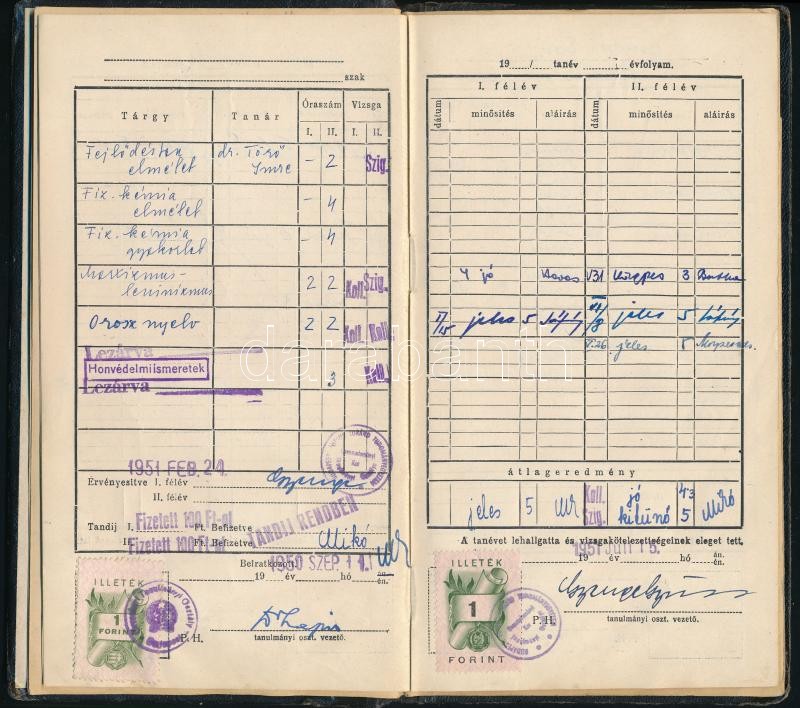 szak
Tárgy
Tanár
Óraszám
Vizsga
I. II.
I. II.
Fejlődéstan
elmélet
dr. Törő
Imre
- 2
Szig.
Fiz. kémia
elmélet
- 4
Fiz. kémia
gyakorlat
- 4
Marxizmus-
leninizmus
2 2
Koll.
Szig.
Orosz nyelv
2 2
Koll.
Koll.
Lezárva
Honvédelmi ismeretek
3
Koll.
Lezárva
1951 FEB. 24.
Érvényesítve I. félév
II. félév
TANDIJ RENDBEN
Tandíj I. Ft. Befizetve
Fizetett 100 Ft-ot
II. Ft. Befizetve
Fizetett 100 Ft-ot
Mikó
Beíratkozott
1950 SZEP. 11.
19 év hó án. én.
ILLETÉK
1
FORINT
P. H.
tanulmányi oszt. vezető.
19 / tanév évfolyam.
I. félév
II. félév
dátum
minősítés
aláírás
dátum
minősítés
aláírás
4 jó
V/31
közepes 3
jeles 5
jeles 5
jeles 5
átlageredmény
jeles 5
Koll.
Szig.
jó
kitünő
4·3
5
Mikó
A tanévet lehallgatta és vizsgakötelezettségeinek eleget tett.
1951 JUL 15.
19 év hó án. én.
ILLETÉK
1
FORINT
P. H.
tanulmányi oszt. vezető.
darabanth